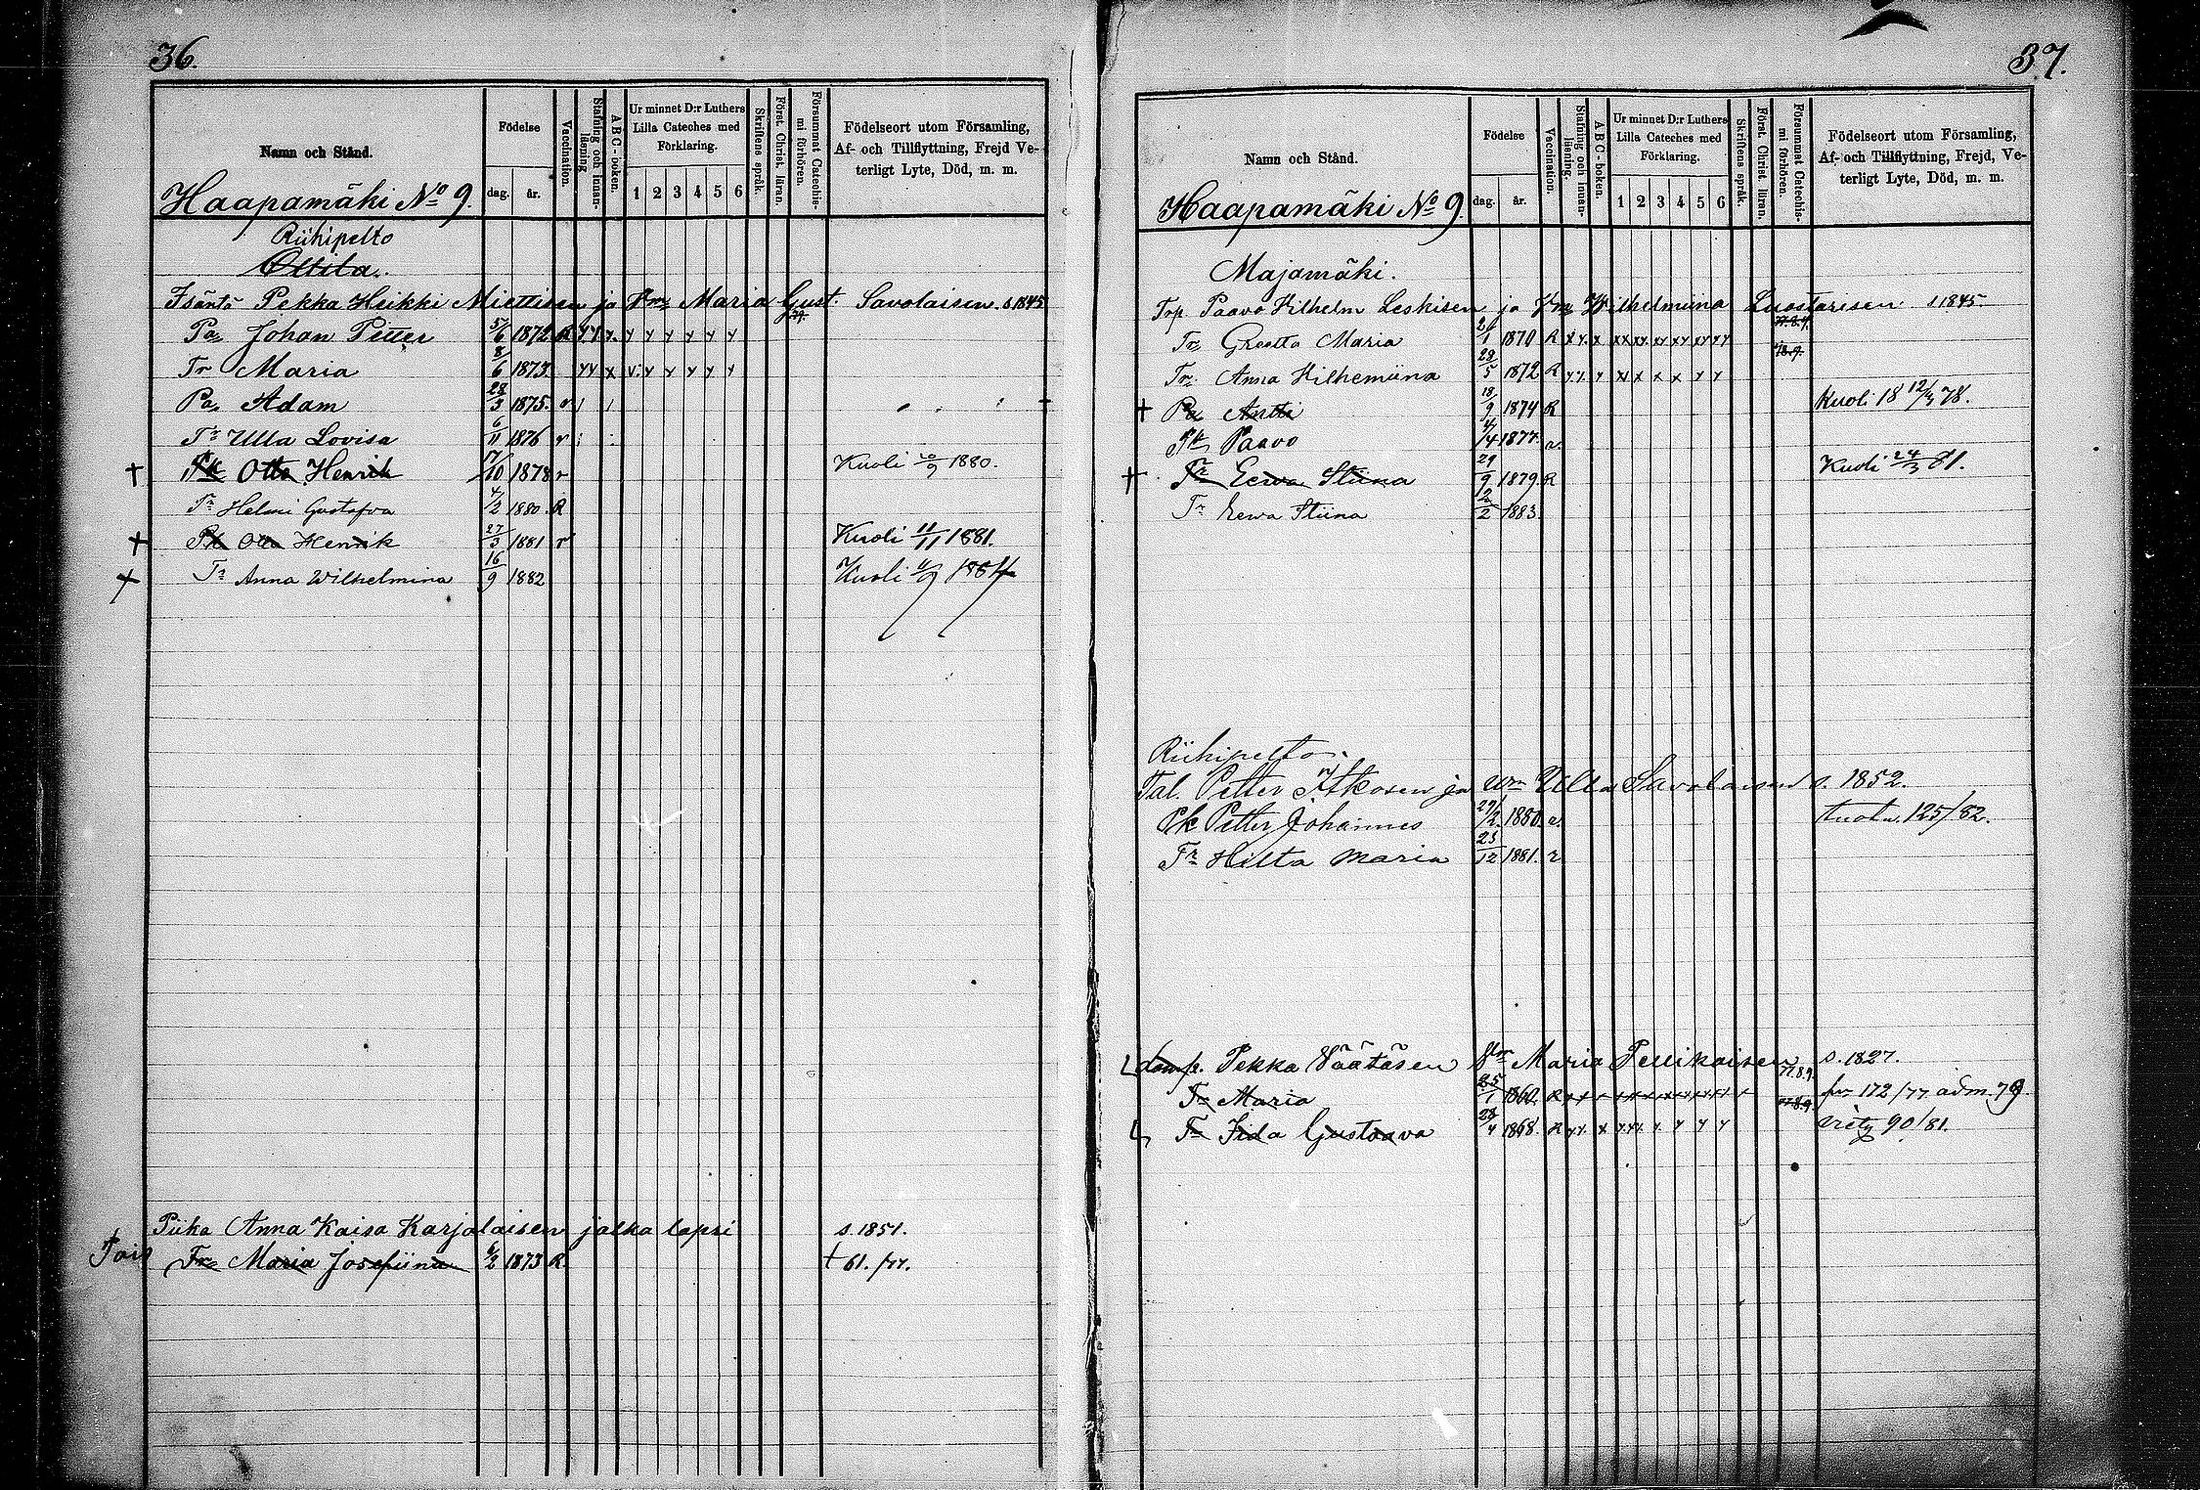 36.
Namn och Stånd.
Födelse
dag. år.
Vaccination.
Stafning och Innanläsning
A B C - boken.
Ur minnet D:r Luthers Lilla Cateches med Förklaring.
1 2 3 4 5 6
Skriftens språk.
Först. Christ. läran.
Försummat Catechismi förhören.
Födelseort utom Församling, Af- och Tillflyttning, Frejd Veterligt Lyte, Död, m. m.
Haapamäki No 9.
Riihipelto
Ollila.
Isäntä Pekka Heikki Miettisen ja Vm Maria Gust. Savolaisen. s. 1845
79.
Pa Johan Petter 5/6 1872 R
Tr Maria 8/6 1873.
Pa. Adam 28/3 1875.
Tr Ulla Lovisa 6/11 1876 r
+ Pk Otto Henrik 17/10 1878 r Kuoli 20/9 1880.
Tr Helmi Gustafva 4/2 1880. R
+ Pk Otto Henrik 27/3 1881 r Kuoli 11/11 1881.
+ Tr Anna Wilhelmina 16/9 1882 Kuoli 1884
Piika Anna Kaisa Karjalaisen jalka lapsi s. 1851.
Pois Tr Maria Josefiina 6/2 1873 R. + 61./77.
37.
Namn och Stånd.
Födelse
dag. år.
Vaccination.
Stafning och Innanläsning.
A B C - boken.
Ur minnet D:r Luthers Lilla Cateches med Förklaring.
1 2 3 4 5 6
Skriftens språk.
Först. Christ. läran.
Försummat Catechismi förhören.
Födelseort utom Församling, Af- och Tillflyttning, Frejd, Veterligt Lyte, Död, m. m.
Haapamäki No 9.
Majamäki.
Torp. Paavo Vilhelm Leskisen ja Vm Wilhelmiina Luostarisen s. 1845.
77.8.9.
Tr Greetta Maria 2/1 1870 R
78.9.
Tr Anna Vilhemiina 28/5 1872 R
+ Pa Antti 18/9 1874 R Kuoli 18 12/3 78.
Pk Paavo 4/4 1877.
+ Tr Eewa Stiina 29/9 1879. R Kuoli 24/3 81.
Tr Eewa Stiina 2/2 1883.
Riihipelto.
Tal. Petter Itkosen ja wm Ulla Savolaisen s. 1852.
Pk Petter Johannes 29/2 1880. tuotu. 125/82.
Tr Hilta Maria 23/12 1881. r
Lamp. Pekka Väätäsen Vm Maria Pellikaisen s. 1827.
77.8.9.
Tr Maria 25/1 1860. R fr 172/77 adm. 79.
77.8.9.
Tr Iida Gustaava 28/4 1868. R vietz 90/81.